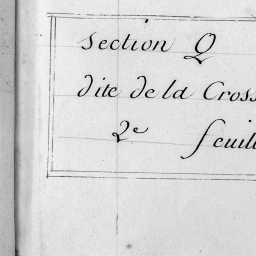 section Q
dite de la Cross
2e feuill